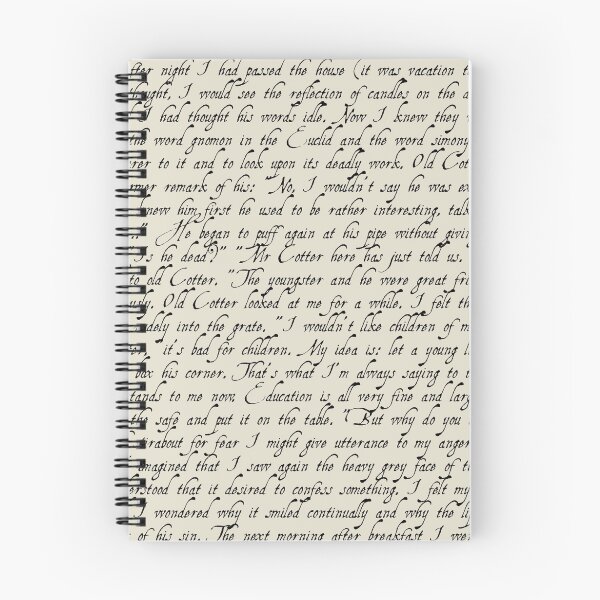 fter night I had passed the house (it was vacation t
ought, I would see the reflection of candles on the d
I had thought his words idle. Now I knew they
the word gnomon in the Euclid and the word simony
rer to it and to look upon its deadly work. Old Cott
rmer remark of his: "No, I wouldn't say he was ex
knew him first he used to be rather interesting, talk
..." He began to puff again at his pipe without givin
"Is he dead?)" "Mr Cotter here has just told us.
to old Cotter. "The youngster and he were great fri
usly. Old Cotter looked at me for a while. I felt th
udely into the grate. "I wouldn't like children of m
it's bad for children. My idea is: let a young l
box his corner. That's what I'm always saying to
tands to me now. Education is all very fine and larg
the safe and put it on the table. "But why do you
stirabout for fear I might give utterance to my anger
imagined that I saw again the heavy grey face of t
erstood that it desired to confess something. I felt my
I wondered why it smiled continually and why the li
of his sin. The next morning after breakfast I we